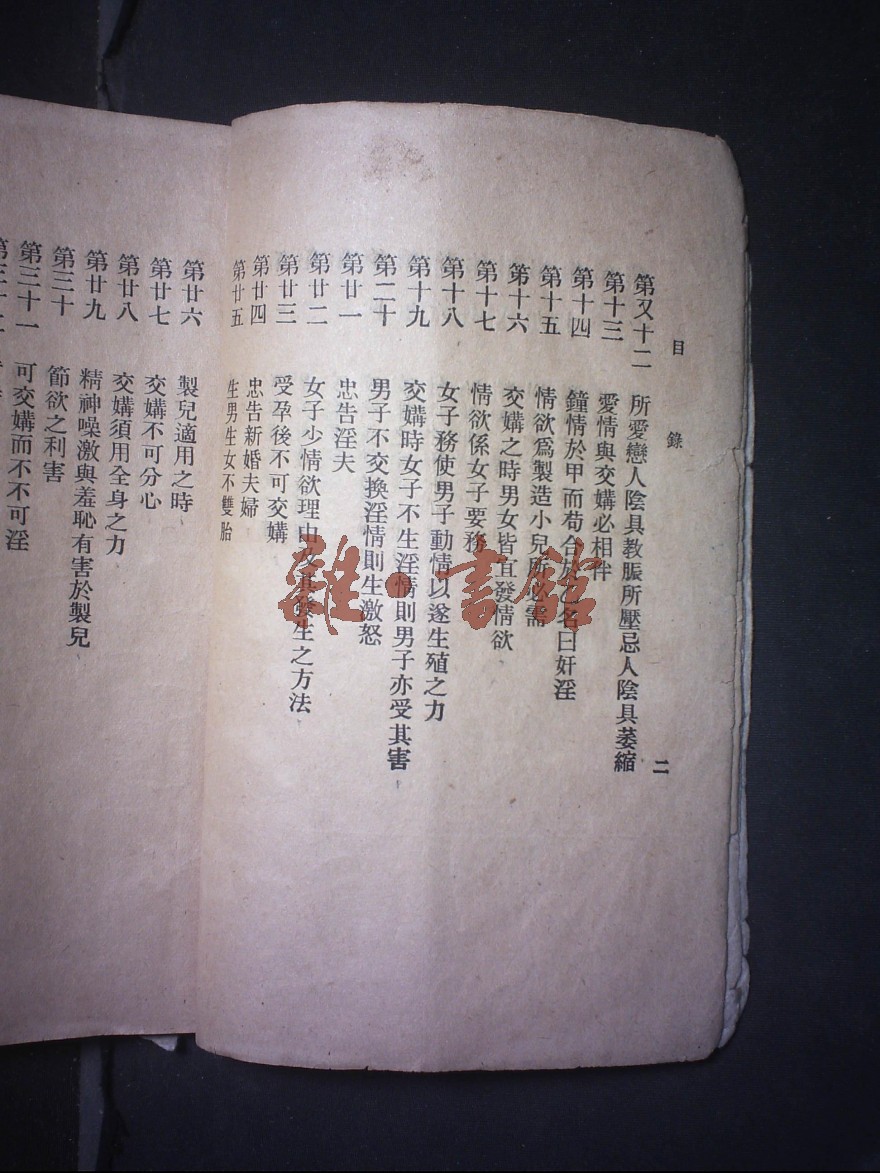 目錄 二
第又十二 所愛戀人陰具教脹所壓忌人陰具萎縮
第十三 愛情與交媾必相伴
第十四 鐘情於甲而苟合於乙名曰奸淫
第十五 情欲爲製造小兒所必需
第十六 交媾之時男女皆宜發情欲
第十七 情欲係女子要務
第十八 女子務使男子動情以遂生殖之力
第十九 交媾時女子不生淫情則男子亦受其害
第二十 男子不交換淫情則生激怒
第廿一 忠告淫夫
第廿二 女子少情欲理由及其發生之方法
第廿三 受孕後不可交媾
第廿四 忠告新婚夫婦
第廿五 生男生女不雙胎
第廿六 製兒適用之時
第廿七 交媾不可分心
第廿八 交媾須用全身之力
第廿九 精神噪激與羞恥有害於製兒
第三十 節欲之利害
第三十一 可交媾而不不可淫
雜·書館